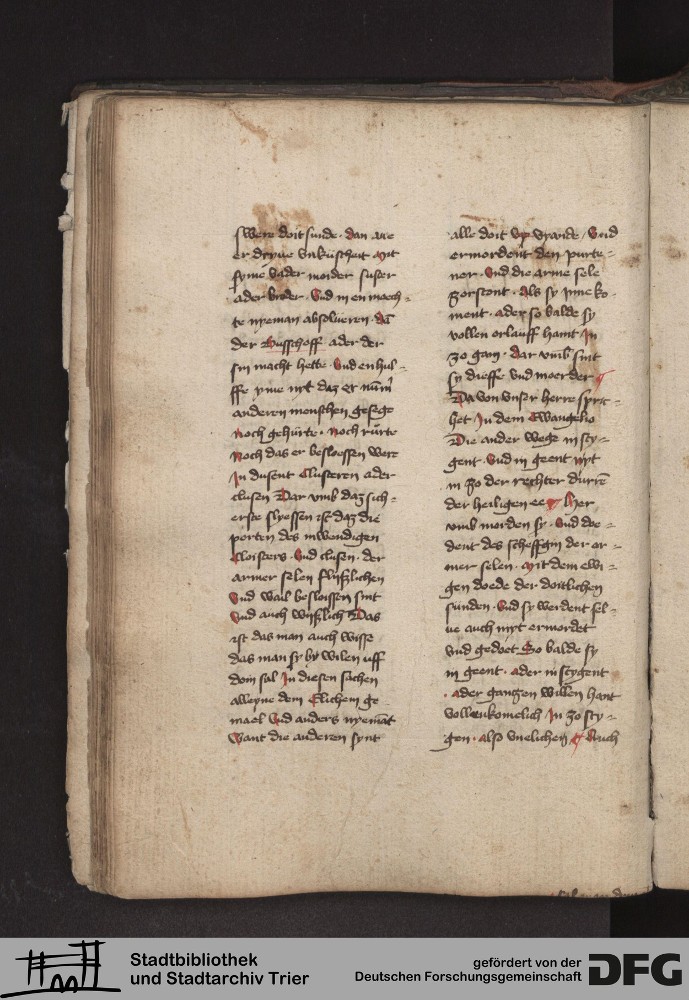 swere doit sunde. dan were
er dryue vnkuscheit mit
syme vader moider suster
ader broder. Vnd in en moech=
te nyeman absolueren. dā
der Busschoff ader der
sin macht hette. Vnd en hul=
ffe yme nyt daz er nūm̄
anderen menschen gesege
Noch gehurte. noch rurte
Noch das er besloessen were
In dusent Clusteren ader
clusen Dar vmb daz sich=
erste slyessen ist daz die
porten des inwendigen
Cloisters. Vnd clusen. der
armer selen flyßlichen
Vnd wail besloissen sint
Vnd auch wyßlich Das
ist das man auch wisse
das man sy by wilen uff
doin sal In diesen sachen
alleyne dem Elichem ge
mael Vnd anders nyemāt
Want die anderen synt
alle doit vp vyande / Vnd
ermordent den purte=
ner. Vnd die arme sele
zorstont. Als sy yme ko
ment. ader so balde sy
vollen orlauff haint In
zo gain. dar vmb sint
sy dieffe vnd moerder
Da von vnser herre spric=
het In dem Ewangelio
Die ander wege in sty=
gent. Vnd in geent nyt
in zo der rechter durrē
der heiligen ee Her
vmb morden sy. Vnd doe=
dent des scheffgin der ar=
mer selen. mit dem ewi=
gen doede der doitlichen
sunden. Vnd sy werdent sel=
ue auch nyt ermordet
vnd gedoet So balde sy
in geent. ader in stygent
. ader gantzen willen hant
vollenkomelich In zo sty=
gen. also vnelichen Auch
Stadtbibliothek
und Stadtarchiv Trier
gefördert von der
Deutschen Forschungsgemeinschaft
DFG